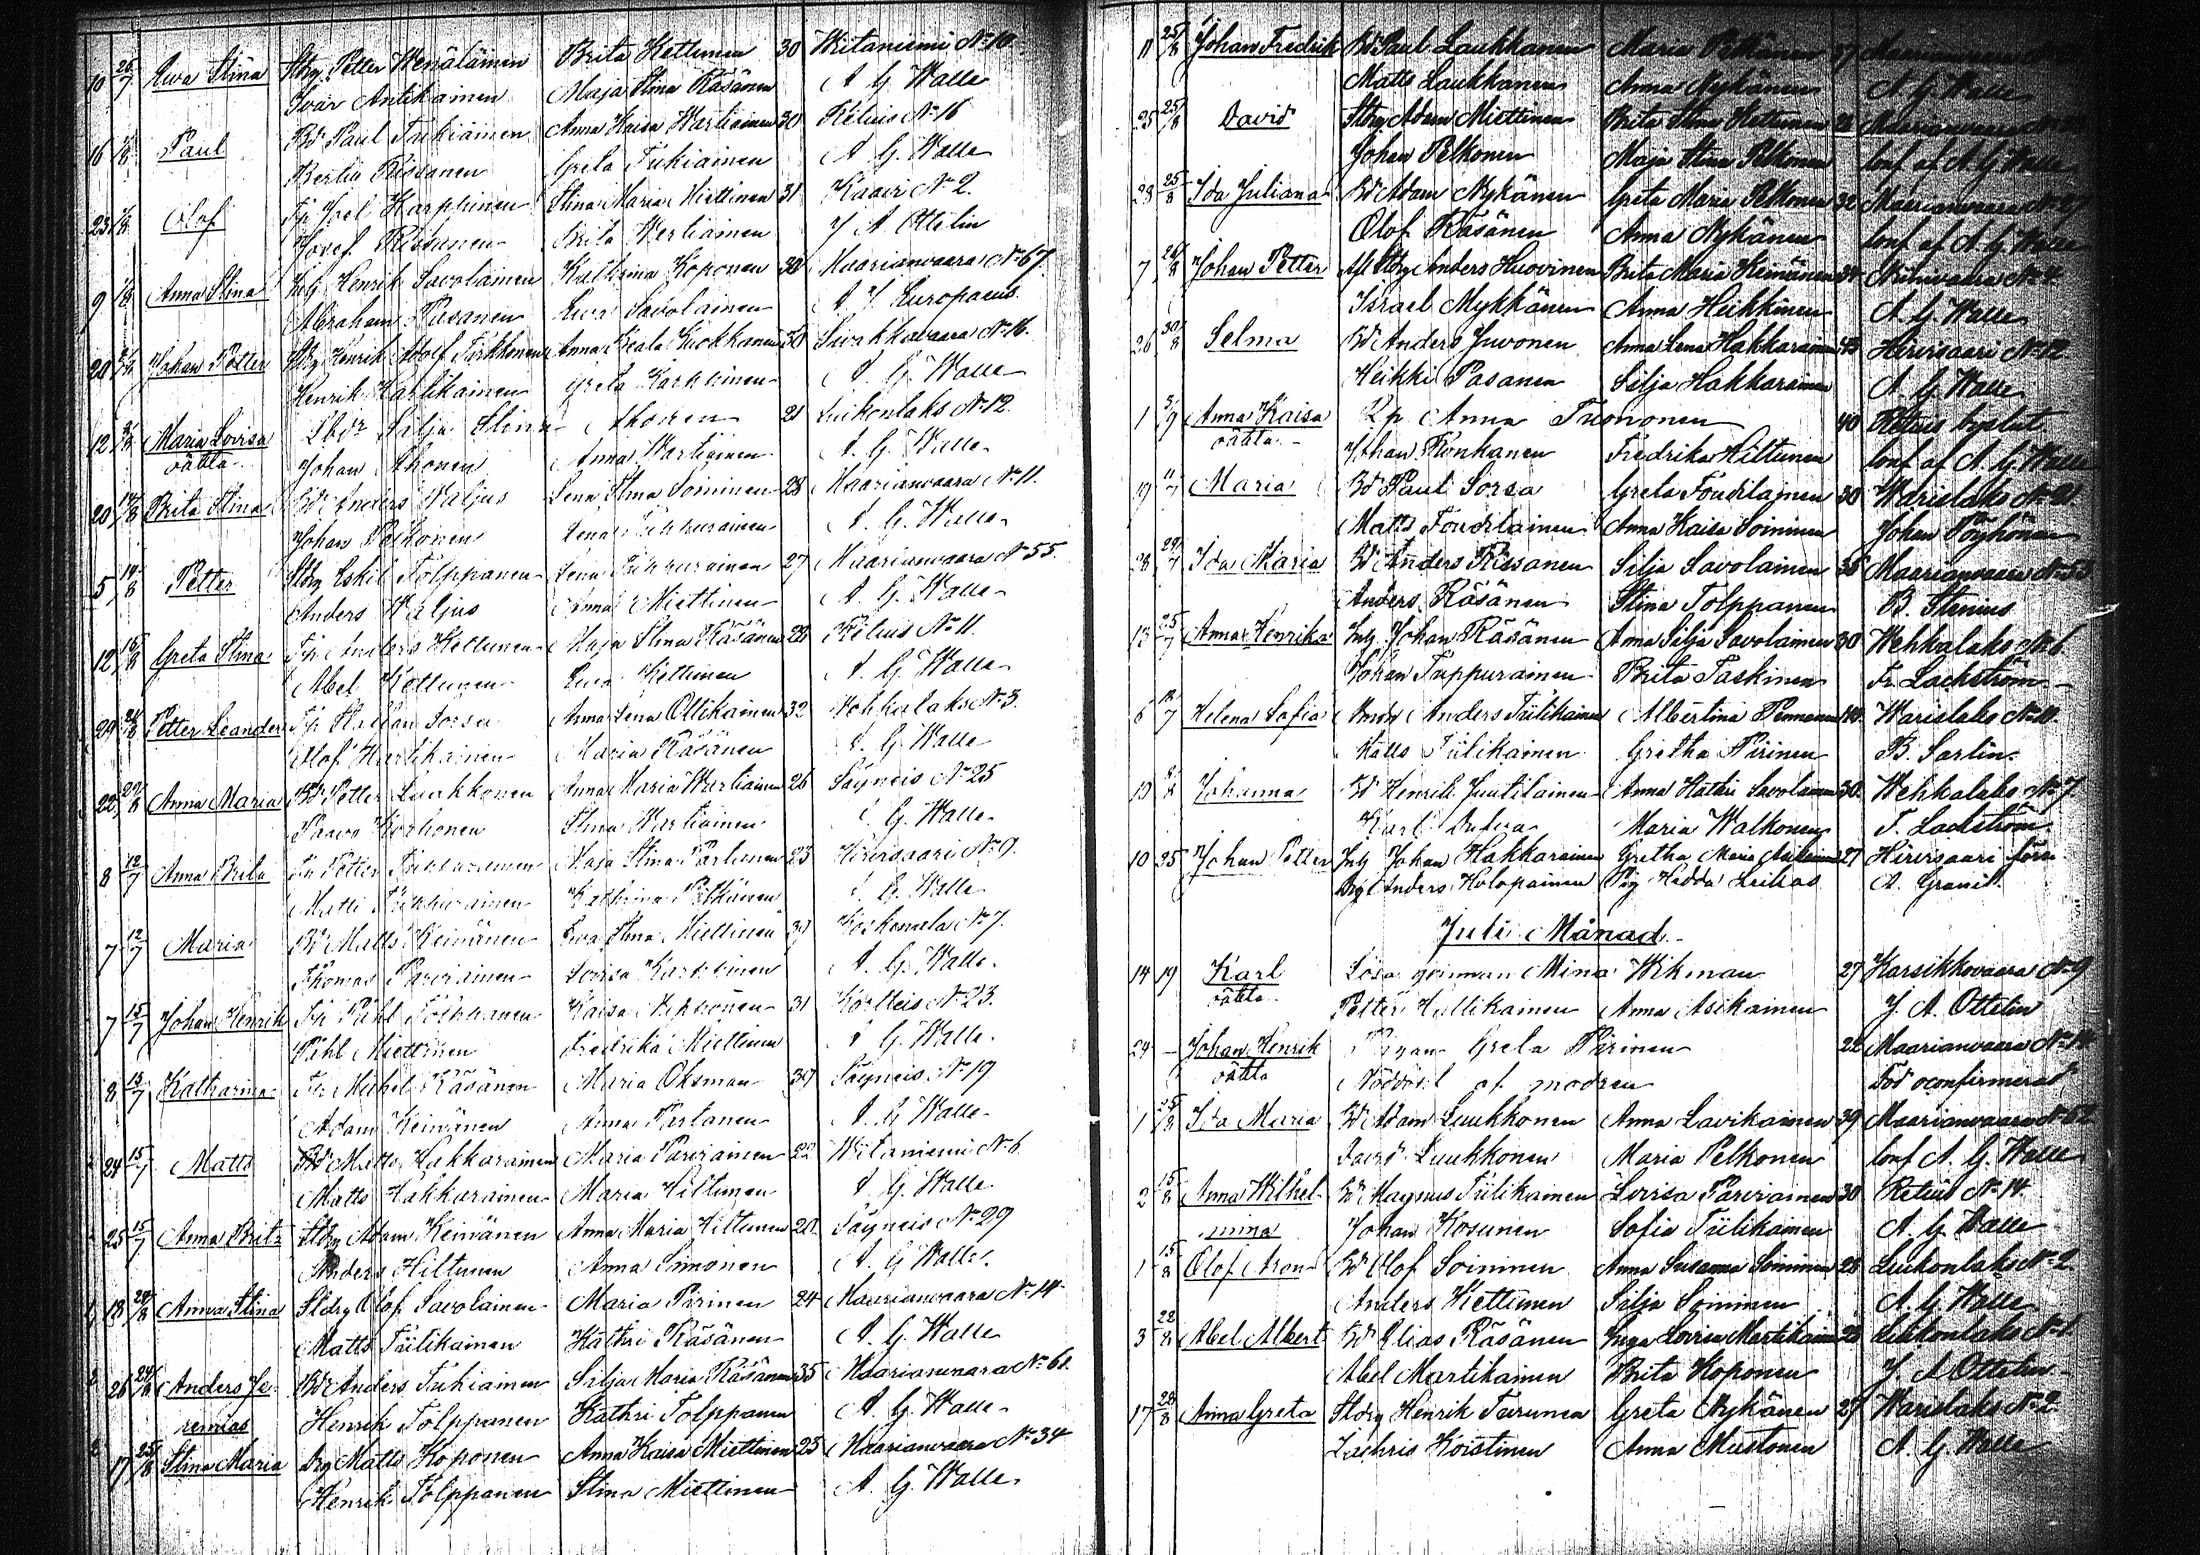 10 26/7 Ewa Stina Stdrg Petter Wenäläinen Brita Kettunen 30 Witaniemi No 10
Ivar Antikainen Maja Stina Räsänen A. G. Walle
16 1/8 Paul Bd Paul Tukiainen Anna Kaisa Wartiainen 30 Retuis No 16
Bertil Rissanen Greta Tukiainen A. G. Walle
23 1/8 Olof Tp Joel Karppinen Stina Maria Miettinen 31 Kaavi No 2.
Josef Räsänen Brita Wertiainen J. A. Ottelin
9 1/8 Anna Stina Inh Henrik Savolainen Kathrina Koponen 30 Maarianvaara No 67
Abraham Räsänen Ewa Savolainen A. J. Europaeus
20 Johan Petter Stdrg Henrik Adolf Turkkonen Anna Beata Kuokkanen 30 Siwikkavaara No 16.
Henrik Kartikainen Greta Karkkinen A. G. Walle
12 8/8 Maria Lovisa Silja Stina Ahonen 21 Luikonlaks No 12.
oäkta Johan Ahonen Anna Wartiainen A. G. Walle
20 14/8 Brita Stina Bd Anders Waljus Lena Stina Soininen 28 Maarianvaara No 11.
Johan Pelkonen Lena Tukkurainen A. G. Walle
5 14/8 Petter Stdrg Eskil Tolppanen Lena Tukkurainen 27 Maarianvaara No 55.
Anders Waljus Anna Miettinen A. G. Walle
12 15/8 Greta Stina Tp Anders Kettunen Maja Stina Räsänen 28 Retuis No 11.
Abel Kettunen Ewa Kettunen A. G. Walle
29 Petter Leander Tp Staffan Sorsa Anna Lena Ollikainen 32 Wehkalaks No 3.
Olof Martikainen Maria Räsänen A. G. Walle
22 29/8 Anna Maria Bd Petter Luukkonen Anna Maria Wartiainen 26 Säyneis No 25
Paavo Korhonen Stina Wartiainen A. G. Walle
8 12/7 Anna Brita Tp Petter Tukkurainen Maja Stina Partanen 23 Hirvisaari No 9.
Matti Tukkurainen Kathrina Pitkänen A. G. Walle
7 12/7 Maria Bd Matts Keinänen Ewa Stina Miettinen 37 Koskemala No 7.
Thomas Parviainen Lovisa Karkkinen A. G. Walle
7 15/7 Johan Henrik Tp Pähl Tolppanen Kaisa Repponen 31 Kortteis No 23.
Pähl Miettinen Fredrika Miettinen A. G. Walle
8 15/7 Katharina Tp Michel Räsänen Maria Oksman 37 Säyneis No 19
Adam Keinänen Anna Partanen A. G. Walle
24 15/7 Matts Bd Matts Hakkarainen Maria Parviainen 22 Witaniemi No 6
Matts Hakkarainen Maria Hiltunen A. G. Walle
25 15/7 Anna Brita Stdrg Adam Keinänen Anna Maria Hiltunen 28 Säyneis No 29
Anders Hiltunen Anna Simonen A. G. Walle
18 24/8 Anna Stina Stdrg Olof Savolainen Maria Pirinen 24 Maarianvaara No 14
Matts Tiilikainen Kathri Räsänen A. G. Walle
26 24/8 Anders Je- Bd Anders Tukiainen Silja Maria Räsänen 35 Maarianvaara No 61.
remias Henrik Tolppanen Kathri Tolppanen A. G. Walle
17 25/8 Stina Maria Drg Matts Koponen Anna Kaisa Miettinen 23 Maarianvaara No 34
Henrik Tolppanen Stina Miettinen A. G. Walle
11 25/8 Johan Fredrik Bd Paul Laukkanen Maria Pelkonen 37
Matts Laukkanen Anna Nykänen A. G. Walle
25 25/8 David Stdrg Adam Miettinen Brita Stina Kettunen Maarianvaara
Johan Pelkonen Maja Stina Pelkonen conf af A. G. Walle
28 25/8 Ida Juliana Bd Adam Nykänen Greta Maria Pelkonen 32 Maarianvaara
Olof Räsänen Anna Nykänen conf af A. G. Walle
7 26/8 Johan Petter Afl Stdrg Anders Huovinen Brita Maria Keinänen 34 No 4
Israel Mykkänen Anna Heikkinen A. G. Walle
26 30/8 Selma Bd Anders Juvonen Anna Lena Hakkarainen 43 Hirvisaari No 12
Heikki Pasanen Silja Hakkarainen A. G. Walle
1 5/9 Anna Kaisa Anna Tuononen 40 Retuis
oäkta Johan Konkanen Fredrika Hiltunen conf af A. G. Walle
19 Maria Bd Paul Sorsa Greta Toudilainen 30 Warislaks No 2
Matts Toudilainen Anna Kaisa Soininen Johan Pöyhönen
28 29/7 Ida Maria Bd Anders Rissanen Silja Savolainen 36 Maarianvaara No 53
Anders Räsänen Stina Tolppanen B. Stenius
13 25/7 Anna Henrika Inh Johan Räsänen Anna Silja Savolainen 30 Wehkalaks No 6.
Johan Tuppurainen Brita Taskinen Fr. Lackström
6 12/7 Helena Sofia Anders Tiilikainen Albertina Pennanen 40 Warislaks No 10.
Kalle Tiilikainen Gretha Pirinen B. Sarlin
13 Johanna Bd Henrik Juutilainen Anna Kathri Savolainen 30 Wehkalaks No 7
Karl Maria Walkonen F. Lackström
10 25 Johan Petter Inh Johan Hakkarainen Gretha Maria 27 Hirvisaari
Anders Holopainen Pig Hedda Leikas A. Granit.
Juli Månad
14 19 Karl Lösa qvinnan Mina Wikman 27 Karsikkovaara No 9
oäkta Petter Hallikainen Anna Asikainen J. A. Ottelin
29 – Johan Henrik Pigan Greta Pirinen 22 Maarianvaara No 14
oäkta Nöddöpt af modren Död oconfirmerad
1 25/8 Ida Maria Bd Adam Luukkonen Anna Lavikainen 39 Maarianvaara No 52
David Luukkonen Maria Pelkonen conf A. G. Walle
2 15/8 Anna Wilhel- Bd Magnus Tiilikainen Lovisa Parviainen 30 Retuis No 14
mina Johan Kosunen Sofia Tiilikainen A. G. Walle
1 15/8 Olof Aron Bd Olof Soininen Anna Susanna Soininen 28 Luikonlaks No 2.
Anders Kettunen Silja Soininen A. G. Walle
3 22/8 Abel Albert Bd Elias Räsänen Inga Lovisa Martikainen 28 No 1.
Abel Martikainen Brita Koponen J. A. Ottelin
17 28/8 Anna Greta Stdrg Henrik Turunen Greta Nykänen 27 Warislaks No 2
Zachris Koistinen Anna Mustonen A. G. Walle